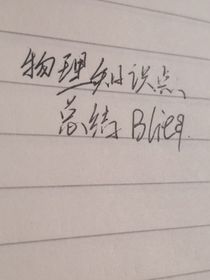 物理知识点、
总结